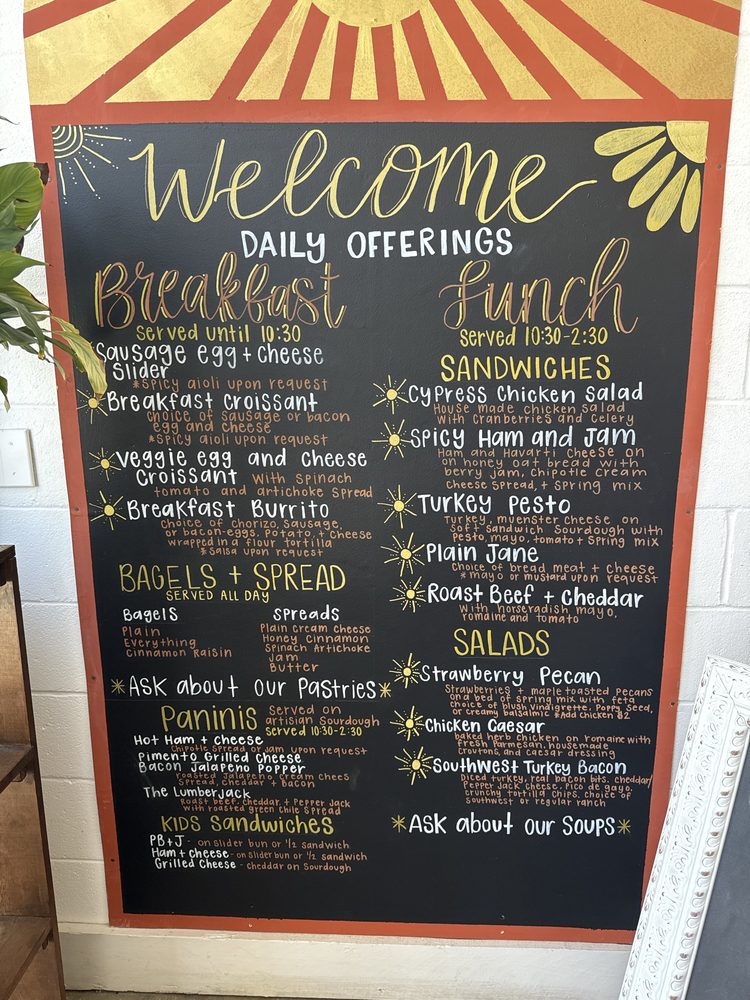 Welcome
DAILY OFFERINGS
Breakfast
Served until 10:30
Sausage egg + cheese
Slider
*Spicy aioli upon request
Breakfast Croissant
choice of Sausage or bacon
egg and cheese
*Spicy aioli upon request
veggie egg and Cheese
Croissant with Spinach
tomato and artichoke Spread
Breakfast Burrito
Choice of Chorizo, Sausage,
or bacon-eggs, Potato, + Cheese
wrapped in a flour tortilla
*Salsa upon request
BAGELS + SPREAD
SERVED ALL DAY
Bagels
Plain
Everything
Cinnamon Raisin
Spreads
Plain cream cheese
Honey Cinnamon
Spinach Artichoke
Jam
Butter
*ASK about our Pastries*
Paninis Served on
artisian Sourdough
Served 10:30-2:30
Hot Ham + Cheese
Chipotle Spread or Jam upon request
Pimento Grilled Cheese
Bacon Jalapeno Popper
roasted Jalapeno cream chees
Spread, cheddar + bacon
The Lumberjack
Roast beef, cheddar, + Pepper Jack
with roasted green chile Spread
KIDS Sandwiches
PB+J - on slider bun or ½ sandwich
Ham + cheese - on slider bun or ½ sandwich
Grilled Cheese - cheddar on Sourdough
Lunch
Served 10:30-2:30
SANDWICHES
Cypress Chicken Salad
House made chicken salad
with Cranberries and Celery
Spicy Ham and Jam
Ham and Havarti Cheese on
on honey oat bread with
berry jam, chipotle Cream
Cheese Spread, + Spring mix
Turkey Pesto
Turkey, muenster cheese on
Soft Sandwich Sourdough with
Pesto, mayo, tomato + Spring mix
Plain Jane
Choice of bread, meat + cheese
*mayo or mustard upon request
Roast Beef + Cheddar
With horseradish mayo,
romaine and tomato
SALADS
Strawberry Pecan
Strawberries + maple toasted Pecans
on a bed of Spring mix with feta
choice of blush vinaigrette, Poppy Seed,
or creamy balsalmic *Add chicken $2
Chicken Caesar
baked herb chicken on romaine with
fresh Parmesan, housemade
Croutons, and Caesar dressing
Southwest Turkey Bacon
Diced turkey, real bacon bits, cheddar/
Pepper Jack cheese, Pico de gayo,
crunchy tortilla chips, choice of
Southwest or regular ranch
*ASK about our Soups*